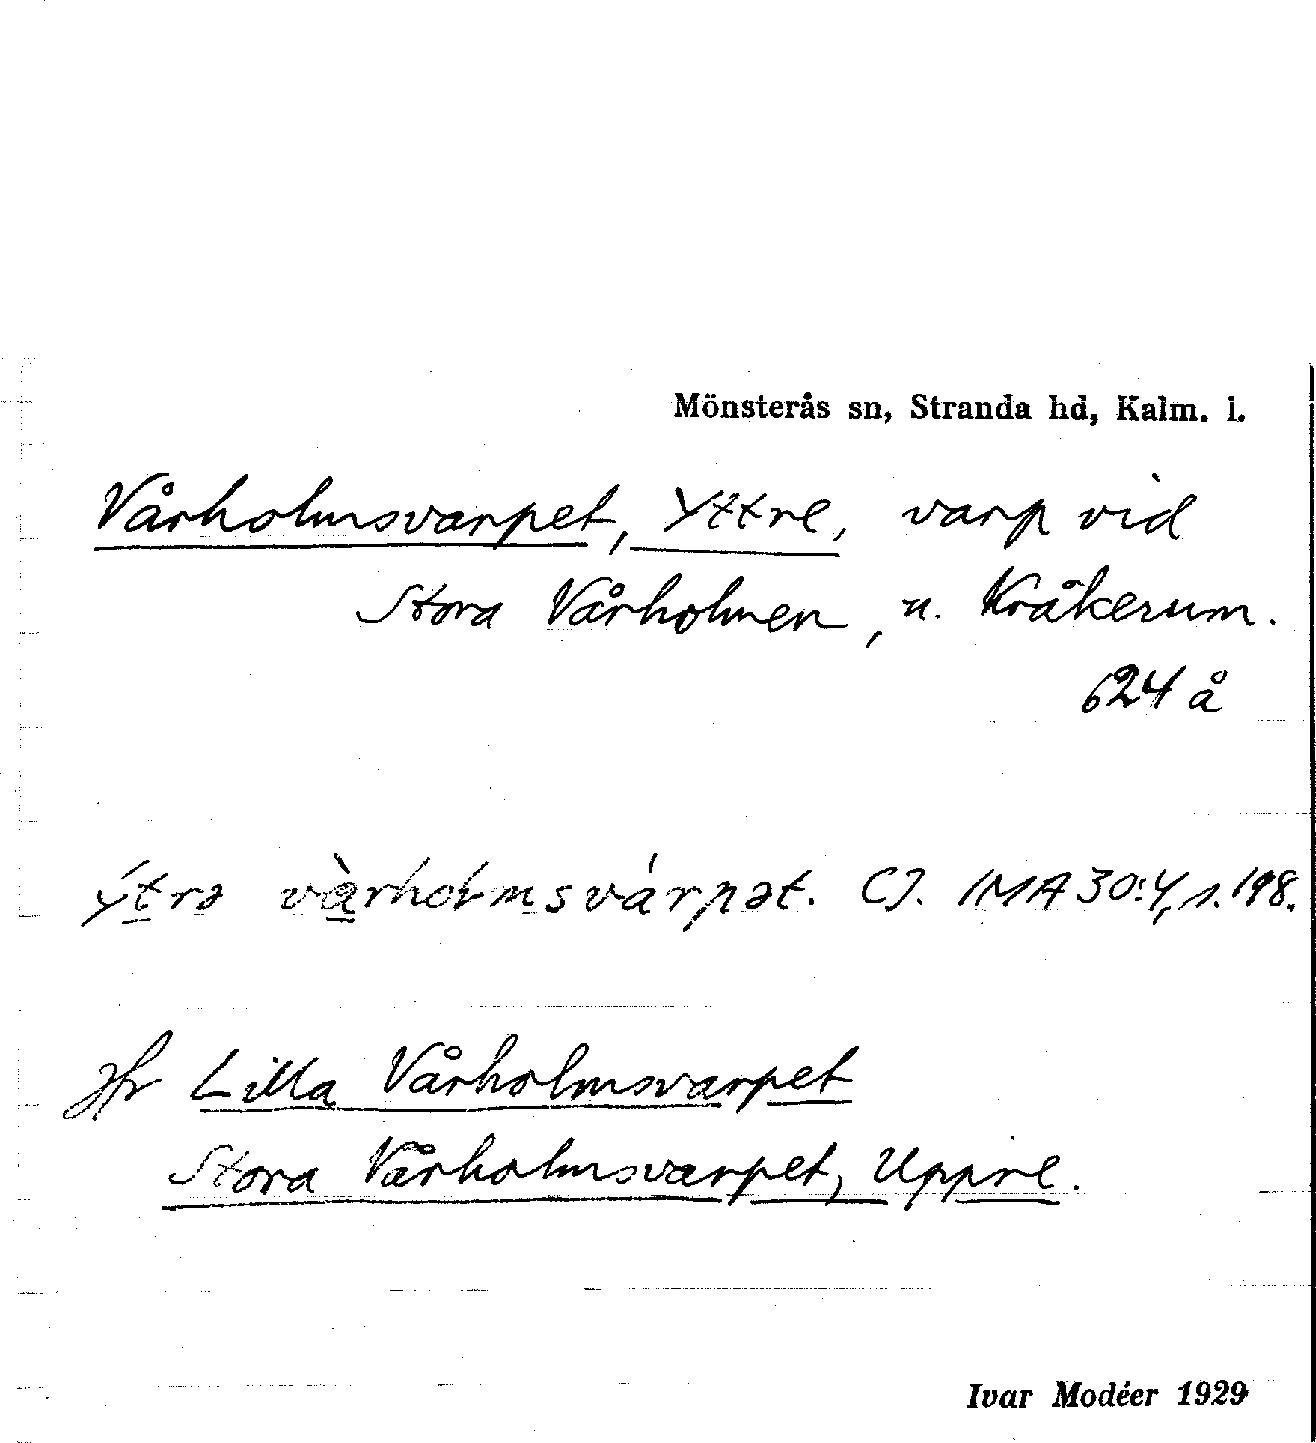 Mönsterås sn, Stranda hd, Kalm. l.
Vårholmsvarpet, Yttre, varp vid
Stora Vårholmen, u. Kråkerum.
624 å
ýtrə vàrholmsvárpət. CJ. IMA 30:4, s. 198.
Jfr Lilla Vårholmsvarpet
Stora Vårholmsvarpet, Uppre.
Ivar Modéer 1929